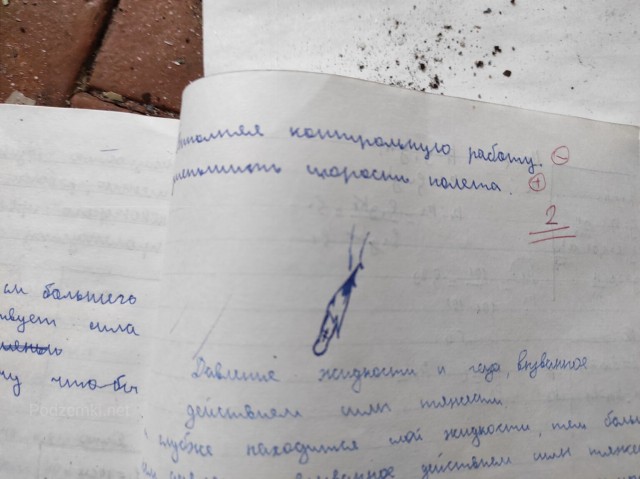 контрольную работу. -
скорости полета. +
2
см большего
твует сила
что бы
Давление жидкости и газа, вызванное
действием силы тяжести
глубже находится слой жидкости, тем боль
вызванное действием силы тяжес
Poozornki.net